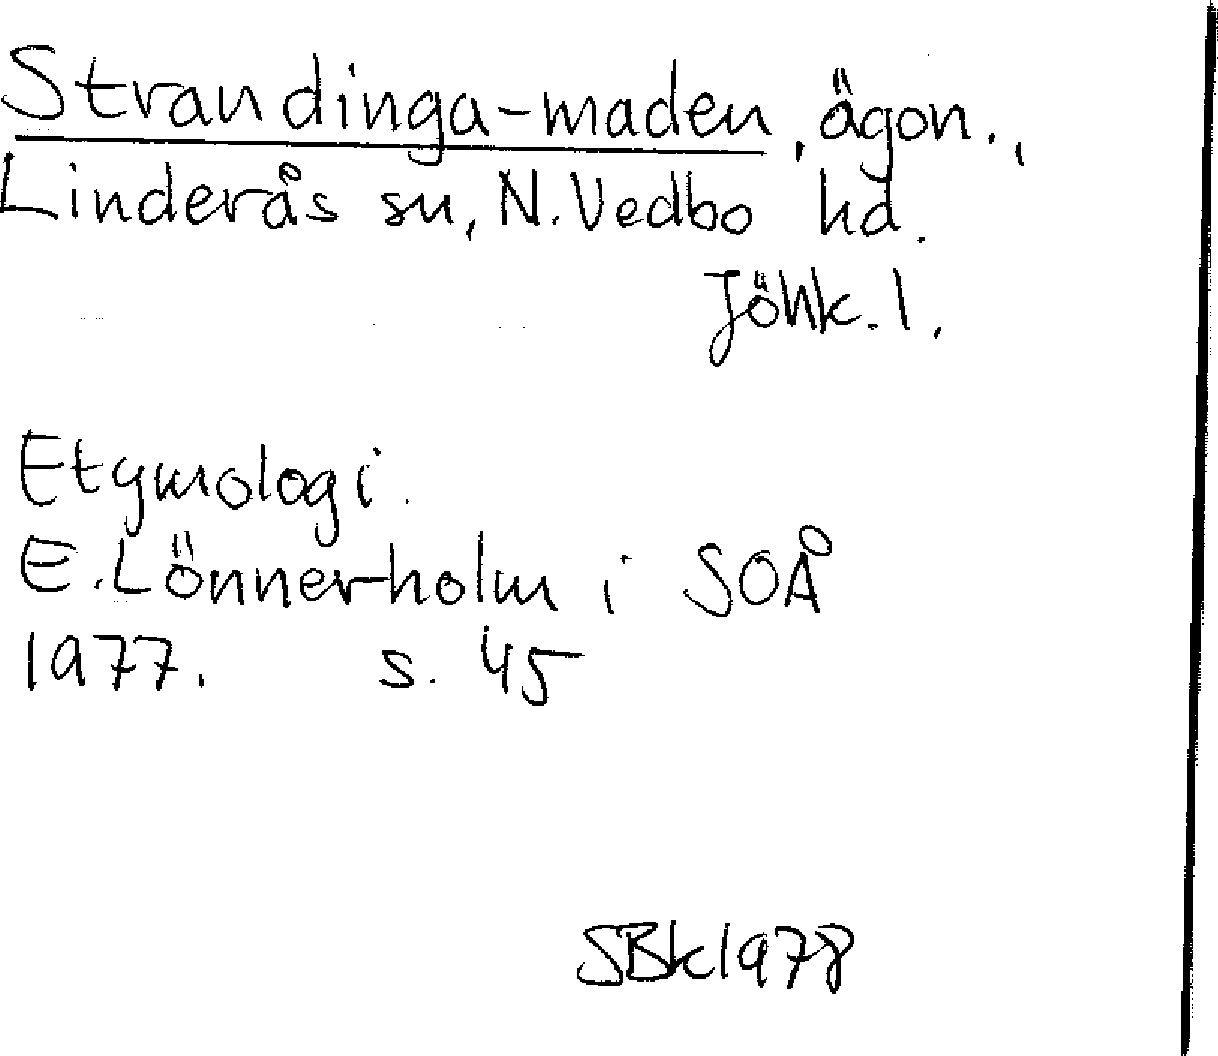 Strandinga-maden, ägon.,
Linderås sn, N. Vedbo hd.
Jönk. l.
Etymologi.
E. Lönnerholm i SOÅ
1977. s. 45
SBk 1978